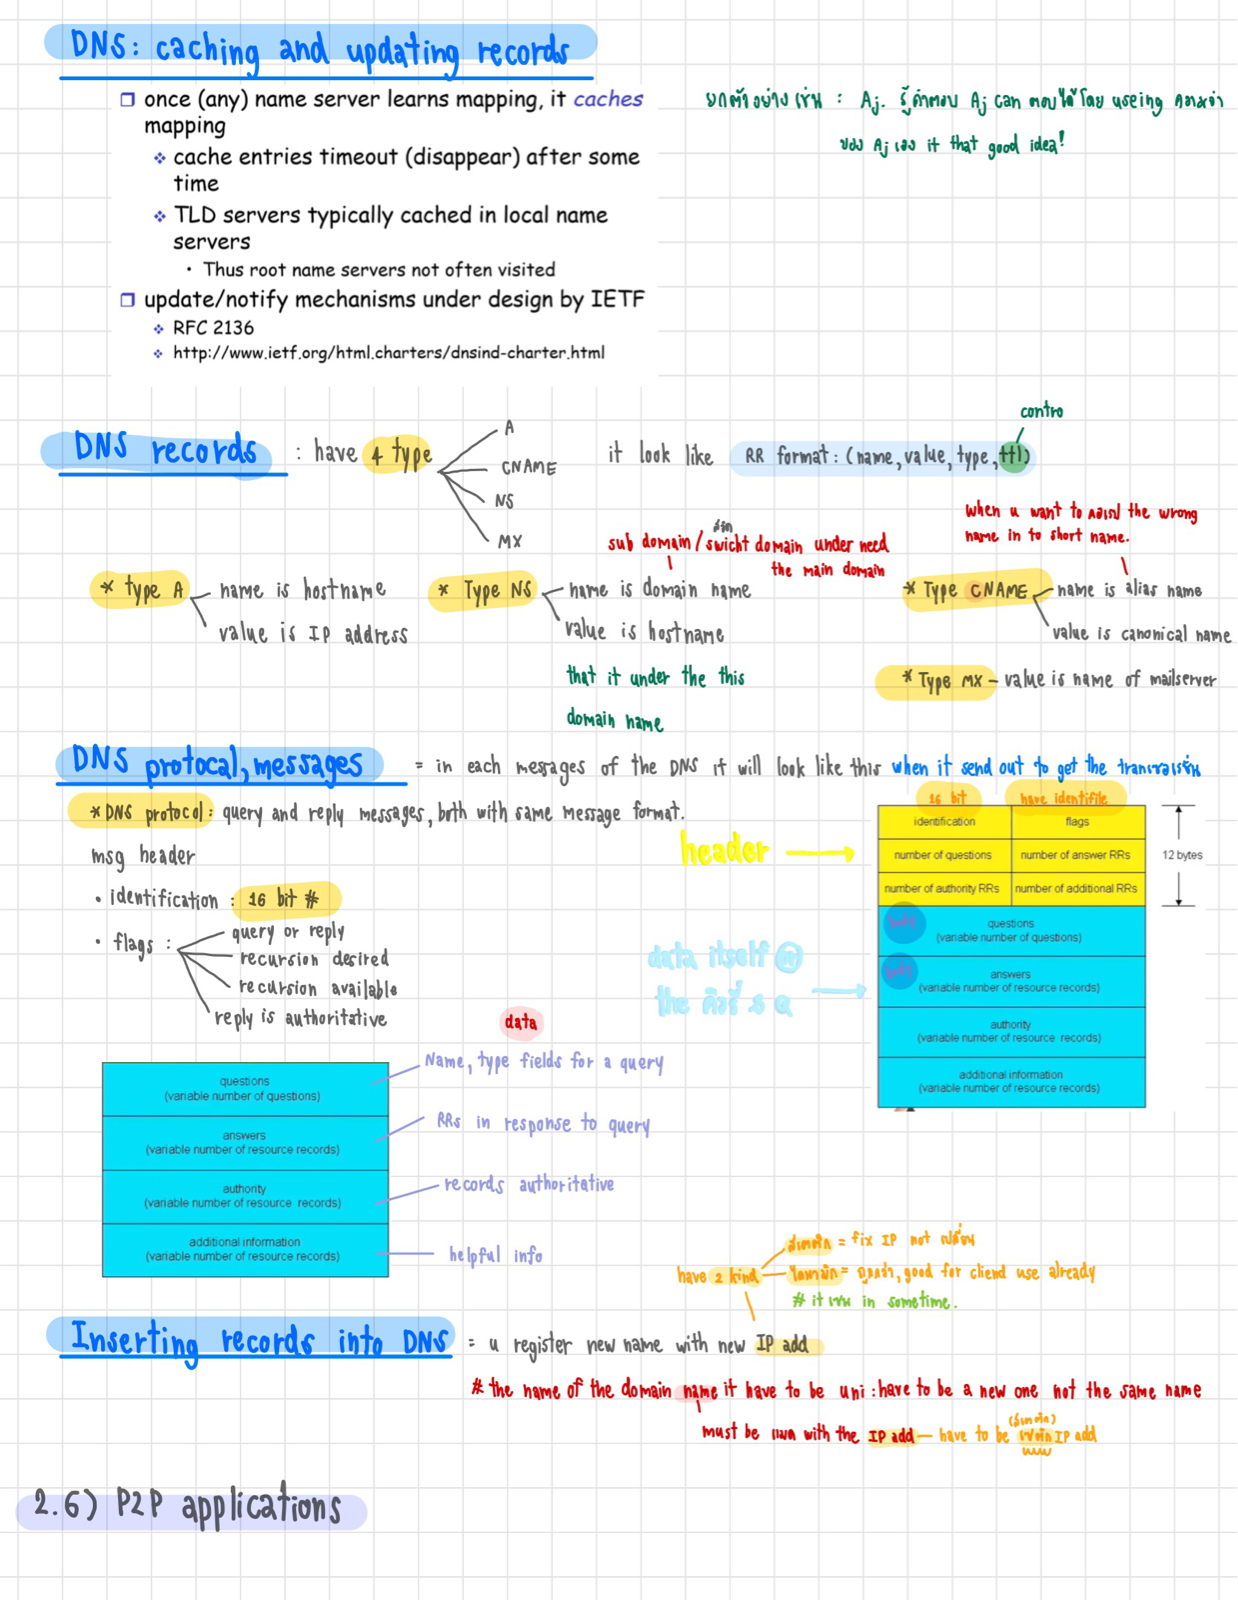 DNS: caching and updating records
once (any) name server learns mapping, it caches
mapping
cache entries timeout (disappear) after some
time
TLD servers typically cached in local name
servers
Thus root name servers not often visited
update/notify mechanisms under design by IETF
RFC 2136
http://www.ietf.org/html.charters/dnsind-charter.html
ยกตัวอย่างเช่น : Aj. รู้คำตอบ Aj can ตอบได้โดย useing
ของ Aj เอง it that good idea!
DNS records : have 4 type
A
CNAME
NS
MX
it look like RR format: (name, value, type, ttl)
contro
* type A
name is hostname
value is IP address
sub domain / swicht domain under need
the main domain
* Type NS
name is domain name
value is hostname
that it under the this
domain name
when u want to the wrong
name in to short name.
* Type CNAME
name is alias name
value is canonical name
* Type MX – value is name of mailserver
DNS protocal, messages = in each messages of the DNS it will look like this when it send out to get the
* DNS protocol: query and reply messages, both with same message format.
msg header
• identification : 16 bit #
• flags :
query or reply
recursion desired
recursion available
reply is authoritative
16 bit
have identifile
identification
flags
number of questions
number of answer RRs
number of authority RRs
number of additional RRs
12 bytes
header
body
questions
(variable number of questions)
body
answers
(variable number of resource records)
authority
(variable number of resource records)
additional information
(variable number of resource records)
data itself or
the
data
questions
(variable number of questions)
Name, type fields for a query
answers
(variable number of resource records)
RRs in response to query
authority
(variable number of resource records)
records authoritative
additional information
(variable number of resource records)
helpful info
have 2 kind
= fix IP not เปลี่ยน
= ถูกกว่า, good for client use already
# it in sometime.
Inserting records into DNS = u register new name with new IP add
# the name of the domain name it have to be uni : have to be a new one not the same name
must be with the IP add – have to be IP add
2.6) P2P applications